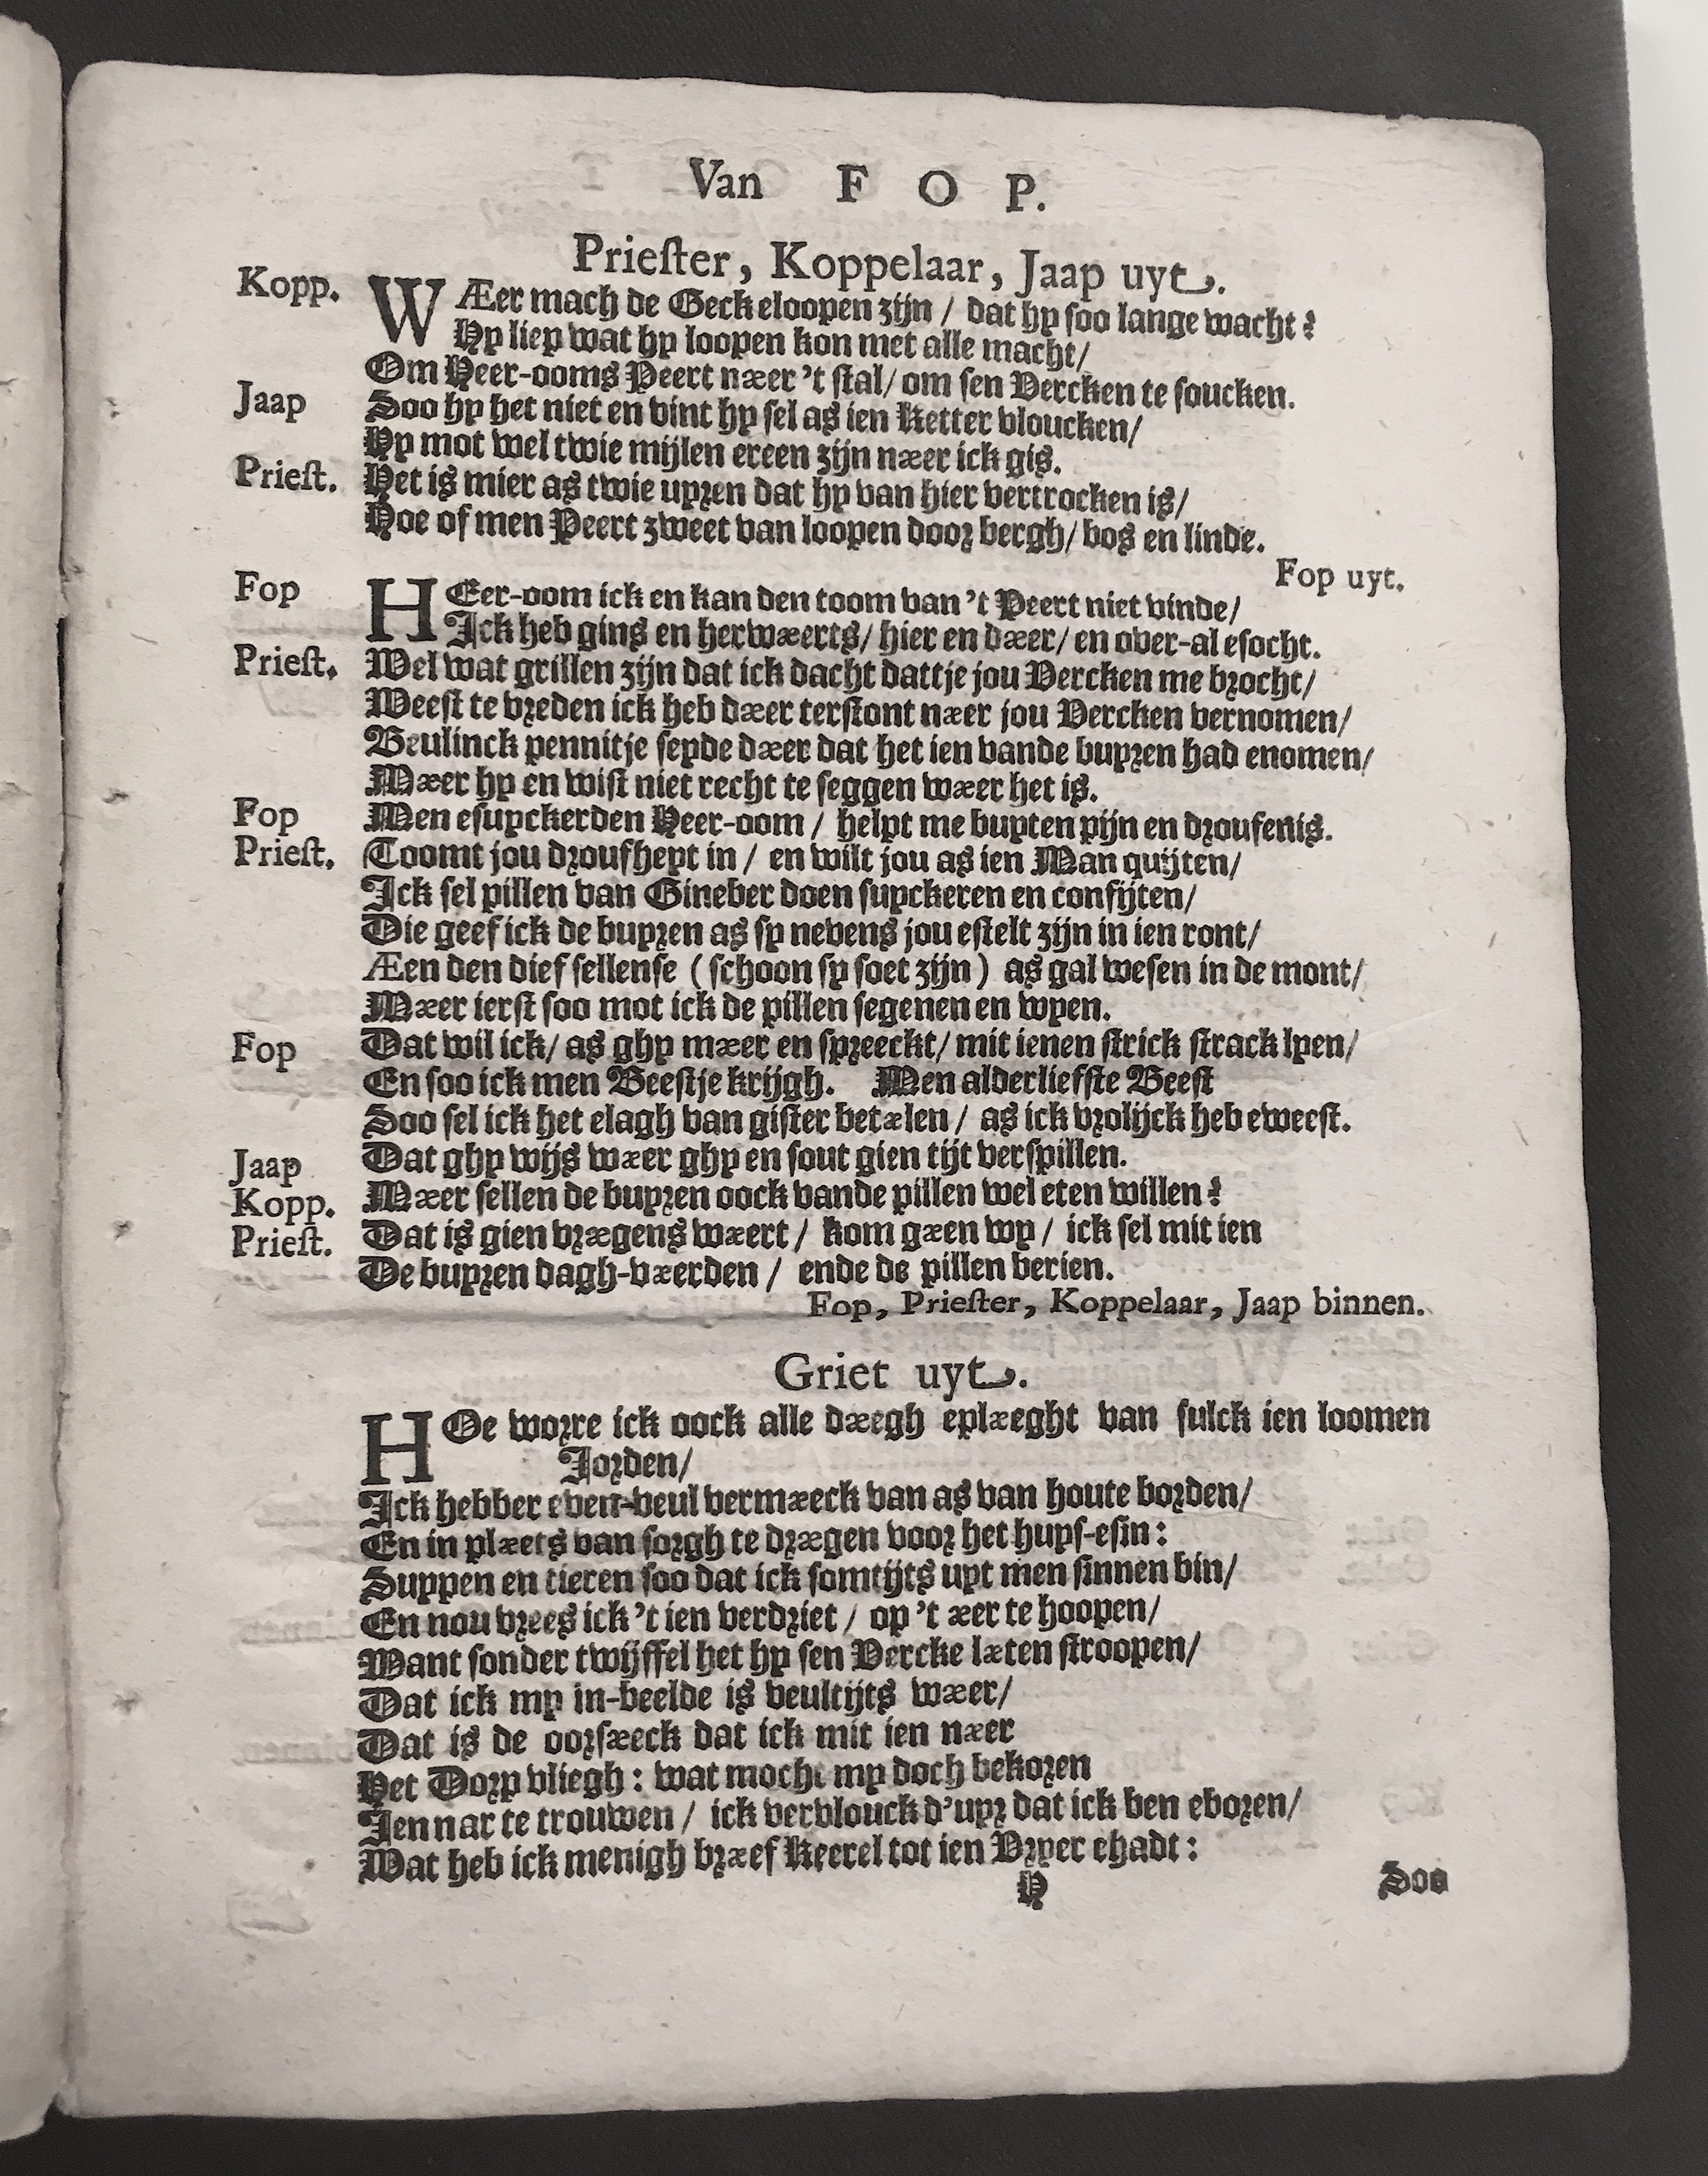 Van F O P.
Priester, Koppelaar, Jaap uyt.
Kopp. WÆer mach de Geck eloopen zijn / dat hy soo lange wacht?
Hy liep wat hy loopen kon met alle macht/
Om Heer-ooms Peert næer 't stal/ om sen Vercken te soucken.
Jaap Soo hy het niet en vint hy sel as ien Ketter vloucken/
Hy mot wel twie mijlen ereen zijn næer ick gis.
Priest. Het is mier as twie uyren dat hy van hier vertrocken is/
Hoe of men Peert zweet van loopen door bergh/ bos en linde.
Fop uyt.
Fop HEer-oom ick en kan den toom van 't Peert niet vinde/
Ick heb gins en herwæerts/ hier en dæer/ en over-al esocht.
Priest. Wel wat grillen zijn dat ick dacht dattje jou Vercken me brocht/
Weest te vreden ick heb dæer terstont næer jou Vercken vernomen/
Beulinck pennitje seyde dæer dat het ien vande buyren had enomen/
Mæer hy en wist niet recht te seggen wæer het is.
Fop Men esuyckerden Heer-oom / helpt me buyten pijn en droufenis.
Priest. Toomt jou droufheyt in / en wilt jou as ien Man quijten/
Ick sel pillen van Gineber doen suyckeren en confijten/
Die geef ick de buyren as sy nevens jou estelt zijn in ien ront/
Æen den dief sellense (schoon sy soet zijn) as gal wesen in de mont/
Mæer ierst soo mot ick de pillen segenen en wyen.
Fop Dat wil ick/ as ghy mæer en spreeckt/ mit ienen strick strack lyen/
En soo ick men Beestje krijgh. Men alderliefste Beest
Soo sel ick het elagh van gister betælen / as ick vrolijck heb eweest.
Jaap Dat ghy wijs wæer ghy en sout gien tijt verspillen.
Kopp. Mæer sellen de buyren oock vande pillen wel eten willen?
Priest. Dat is gien vrægens wæert / kom gæen wy / ick sel mit ien
De buyren dagh-væerden / ende de pillen berien.
Fop, Priester, Koppelaar, Jaap binnen.
Griet uyt.
HOe worre ick oock alle dægh eplæeght van sulck ien loomen
Jorden/
Ick hebber even-veul vermæeck van as van houte borden/
En in plæets van sorgh te drægen voor het huys-esin:
Suypen en tieren soo dat ick somtijts uyt men sinnen bin/
En nou vrees ick 't ien verdriet / op 't ær te hoopen/
Want sonder twijffel het hy sen Vercke læten stroopen/
Dat ick my in-beelde is veultijts wæer/
Dat is de oorsæeck dat ick mit ien næer
Het Dorp vliegh: wat mocht my doch bekoren
Ien nar te trouwen / ick vervlouck d'uyr dat ick ben eboren/
Wat heb ick menigh bræef Keerel tot ien Vryer ehadt:
H Soo